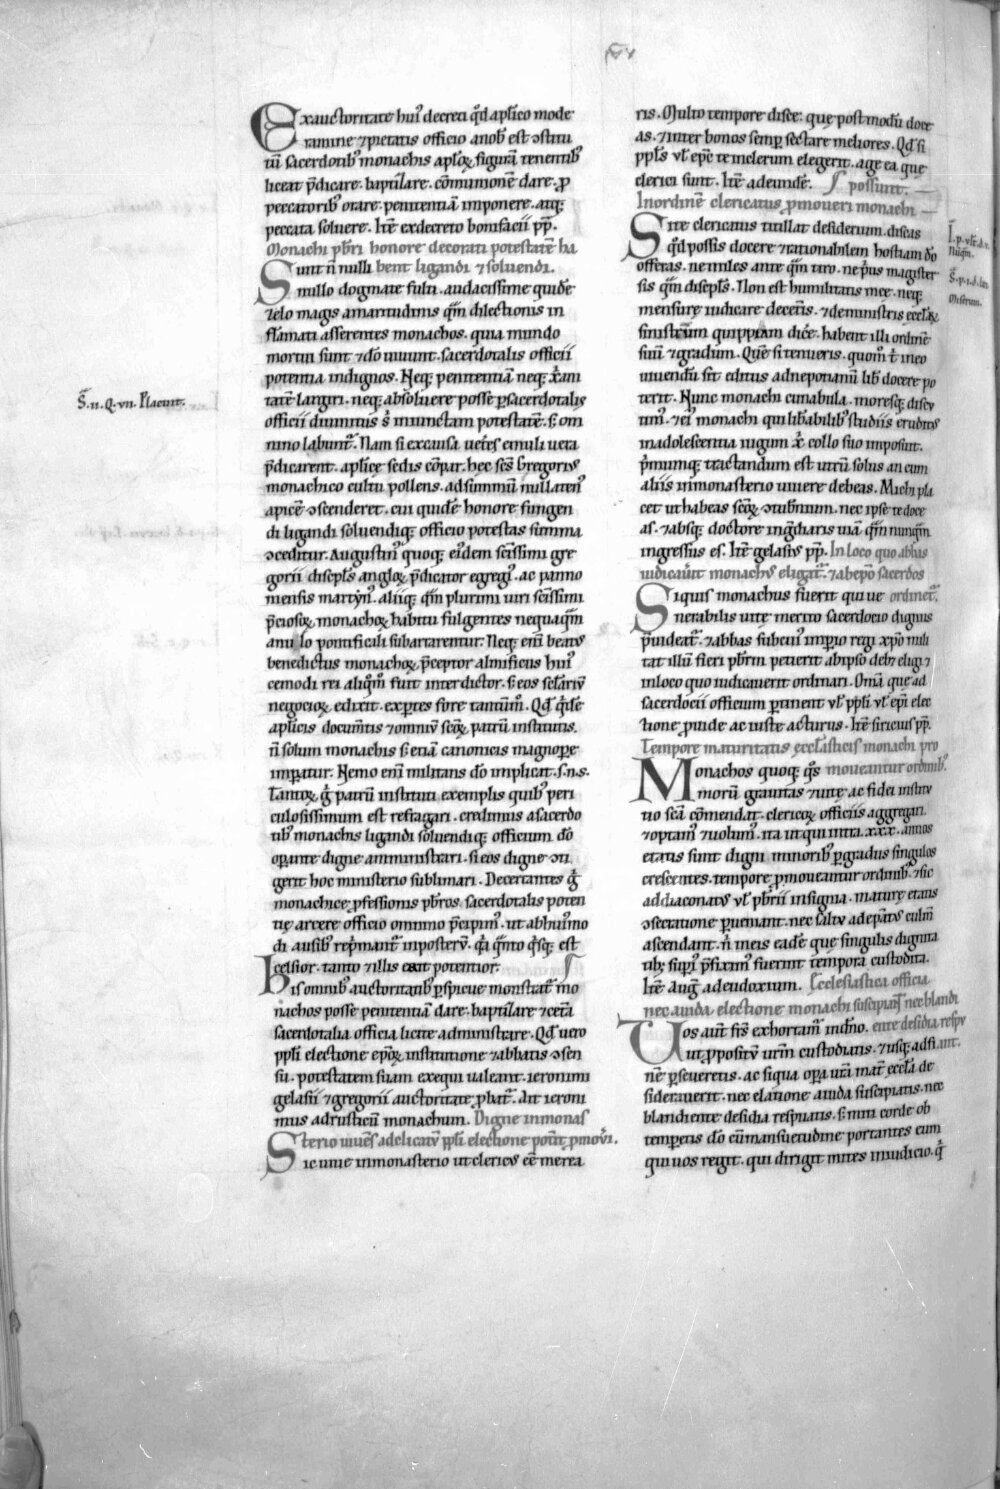 Ex auctoritate huiꝰ decreti qd̓ apl̓ico mode
ramine ⁊ pietatis officio anob̓ est ↄstitu
tū sacerdotibꝰ monachis apl̓oꝝ figurā tenentibꝰ
liceat p̄dicare. baptizare. cōmunionē dare. ꝓ
peccatoribꝰ orare. penitentiā imponere. atq;
peccata soluere. Itē exdecreto bonifacii pp̄.
Monachi pb̄ri honore decorati potestatē ha
Sunt n̄ nulli bent ligandi ⁊ soluendi.
nullo dogmate fulti. audacissime quidē
zelo magis amaritudinis quā dilectionis in
flāmati asserentes monachos. quia mundo
mortui sunt ⁊ dō uiuunt. sacerdotalis officii
potentia indignos. Neq; penitentiā neq; xp̄iani
tatē largiri. neq; absoluere posse ꝑ sacerdotalis
officii diuinitus s̓ iniunctam potestatē. s; om
nino labunt̄. Nam si excausa uet̓es emuli ueta
p̄dicarent. apl̓ice sedis cōpar. hec scs̄ Gregoriꝰ
monachico cultu pollens. adsummū nullatenꝰ
apicē ↄscenderet. cui quidē honore fungen
di ligandi soluendiq; officio potestas summa
ↄceditur. Augustinꝰ quoq; eiꝰdem scīssimi gre
gorii discipls̄ angloꝝ p̄dicator egregiꝰ. ac panno
niensis martynꝰ. aliiq; quā plurimi uiri scīssimi
p̄ciosoꝝ monachoꝝ habitu fulgentes nequaquā
anulo pontificali subarrarentur. Neq; eni̅ beatꝰ
benedictus monachoꝝ p̄ceptor almificus huiꝰ
cemodi rei aliqͦmo fuit interdictor. s; eos sclariū
negocioꝝ edixit. expertes fore tantūmo. Qd̓ qͥdē
apl̓icis documtis ⁊ omniū scōꝝ patrū institutis.
n̄ solum monachis s; etiā canonicis magnopere
imperatur. Nemo eni̅ militans dō implicat. s. n. s.
Tantoꝝ g̓ patrū instituti exemplis quibꝰ peri
culosissimum est refragari. credimus asacerdo
tibꝰ monachis ligandi soluendiq; officium dō
operante digne amministrari. si eos digne ↄti
gerit hoc ministerio sublimari. Decertantes g̓
monachice ꝓfessionis pb̄ros sacerdotalis poten
tie arcere officio omnino p̄cipimꝰ. ut abhuiꝰmo
di ausibꝰ rep̄mant̄ inposterū. qͥa qͣnto qͥsq; est
celsior. tanto ⁊ illis erit potentior.
His omnibꝰ auctoritatibꝰ ꝑspicue monstrat̄ mo
nachos posse penitentiā dare. baptizare ⁊ cetā
sacerdotalia officia licite administrare. Qd̓ uero
ppl̓i electione epōꝝ institutione ⁊ abbatis ↄsen
su. potestatem suam exequi ualeant. ieronimi
gelasii ⁊ gregorii auctoritate ꝓbat̄. Ait ieroni
mus adrusticū monachum. Digne inmonas
Sterio uiuēs adelicatū ppl̓i electione pot̓it ꝓmoueri.
Sic uiue inmonasterio ut clericꝰ eē merea
S̄. ii. Q. vii. Placuit.
ris. Multo tempore disce. que postmodū doce
as. ⁊ inter bonos semp̄ sectare meliores. Qd̓ si
ppl̓s ul̓ ep̄c te inclerum elegerit. age ea que
clerici sunt. Itē adeundē. possunt.
Inordinē clericatus ꝓmoueri monachi
Site clericatus titillat desiderium. discas
qd̓ possis docere ⁊ rationabilem hostiam dō
offeras. ne miles ante quā tiro. ne p̓us magister
sis quā discipls̄. Non est humilitatis mee. neq;
mensure iudicare deceteris. ⁊ deministris eccl̓iaꝝ
sinistrum quippiam dicē. habent illi ordinē
suū ⁊ gradum. Quē si tenueris. quom̄ tͥ ineo
uiuendū sit. editus adnepotianū libꝰ docere po
terit. Nunc monachi cunabula. moresq; discu
timꝰ. ⁊ eiꝰ monachi qui lib̓alibꝰ studiis eruditꝰ
inadolescentia iugum x̄ collo suo imposuit.
p̓mumq; tractandum est utrū solus an cum
aliis inmonasterio uiuere debeas. Michi pla
cet ut habeas scōꝝ ↄtub̓nium. nec ipse te doce
as. ⁊ absq; doctore ingrediaris uiā quā nunquā
ingressus es. Itē gelasiꝰ pp̄. In loco quo abbas
iudicauit monachꝰ eligat̄. ⁊ abepō sacerdos
Siquis monachus fuerit qui ue ordinet̄.
nerabilis uite merito sacerdocio dignus
p̄uideat̄. ⁊ abbas subcuiꝰ imperio regi xp̄o mili
tat illū fieri pb̄rm petierit abipso deb; eligi ⁊
inloco quo iudicauerit ordinari. Omīa que ad
sacerdocii officium ꝑtinent ul̓ ppl̓i ul̓ epi elec
tione ꝓuide ac iuste acturus. Itē siricius pp̄.
Tempore maturitatis eccl̓iasticis monachi pro
Monachos quoq; qͦs moueantur ordinibꝰ.
morū grauitas ⁊ uite ac fidei institu
tio scā cōmendat. clericoꝝ officiis aggregari.
⁊ optamꝰ ⁊ uolumꝰ. ita ut qui intra .xxx. annos
etatis sunt digni minoribꝰ ꝑ gradus singulos
crescentes. tempore ꝓmoueantur ordinibꝰ. ⁊ sic
addiaconatꝰ ul̓ pb̄rii insignia. mature etatis
ↄsecratione ꝑueniant. nec saltu adep̄atꝰ culm̄
ascendant. n̓ ineis eadē que singulis dignita
tib; sup̓iꝰ p̄fiximꝰ fuerint tempora custodita.
Itē Aug̓ adeudoxium. Eccl̓esiastica officia
nec auida electione monachi suscipiant̄ nec blandi
Vos aut̄ fr̄s exhortam̄ indnō. ente desidia respu
ut ꝓpositū ur̄m custodiatis. ⁊ usq; adfi ant.
nē ꝑseueretis. ac siqua opera ur̄a mat̄ eccl̓ia de
siderauerit. nec elatione auida suscipiatis. nec
blandiente desidia respuatis. s; miti corde ob
temperis dō cū mansuetudine portantes eum
qui uos regit. qui dirigit mites iniudicio. q̓